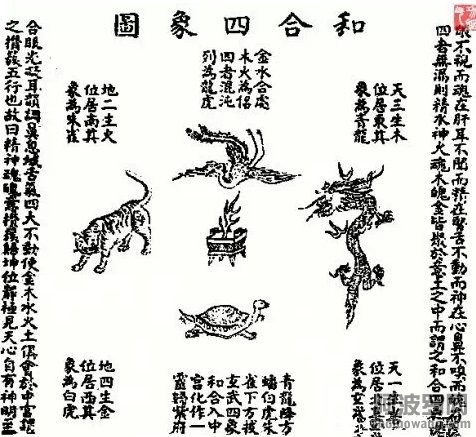 和合四象圖
不視而魂在肝耳不聞而精在腎舌不動而神在心鼻不嗅而
四者無漏則精水神火魂木魄金皆聚於意土之中而謂之和合四
天三生木
位居東其
象為青龍
金水合處
木火為侶
四者混沌
列為龍虎
地二生火
位居南其
象為朱雀
天一生
位居
象為玄
青龍降方
蟠白虎朱
雀下方按
玄武四象
和合入中
宮化作一
靈歸紫府
地四生金
位居西其
象為白虎
合眼光凝耳韻調鼻息緘舌氣四大不動使金木水火土俱會於中宮謂
之攢簇五行也故曰精神魂魄意攢簇歸坤位靜極見天心自有神明至
阿波罗网